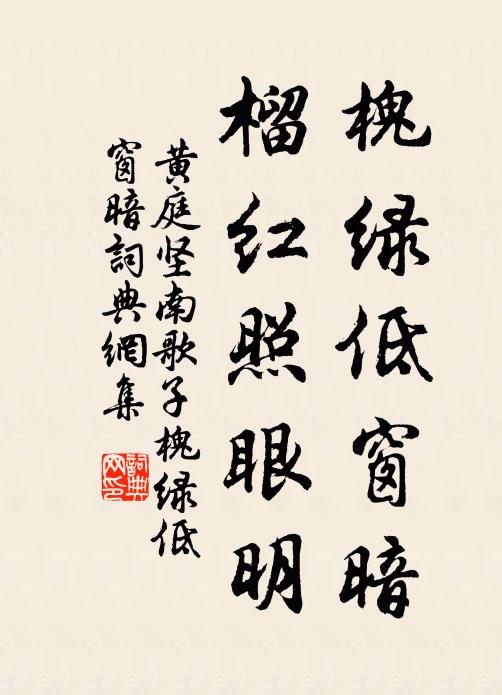 槐绿低窗暗
榴红照眼明
黄庭坚南歌子槐绿低
窗暗詞典網集
詞典
网印